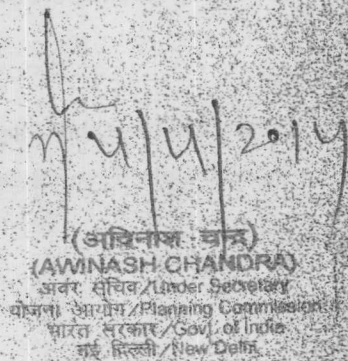 4/4/2014
(अविनाश चन्द्र)
(AWINASH CHANDRA)
अवर सचिव/Under Secretary
योजना आयोग/Planning Commission
भारत सरकार/Govt. of India
नई दिल्ली/New Delhi